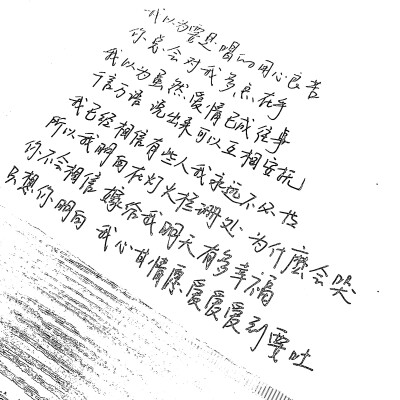 我以为要是唱的用心良苦
你总会对我多点在乎
我以为虽然爱情已成往事
千言万语说出来可以互相安抚
我已经相信有些人我永远不必等
所以我明白在灯火栏珊处为什麼会哭
你不会相信嫁给我明天有多幸福
只想你明白我心甘情愿爱爱爱到要吐